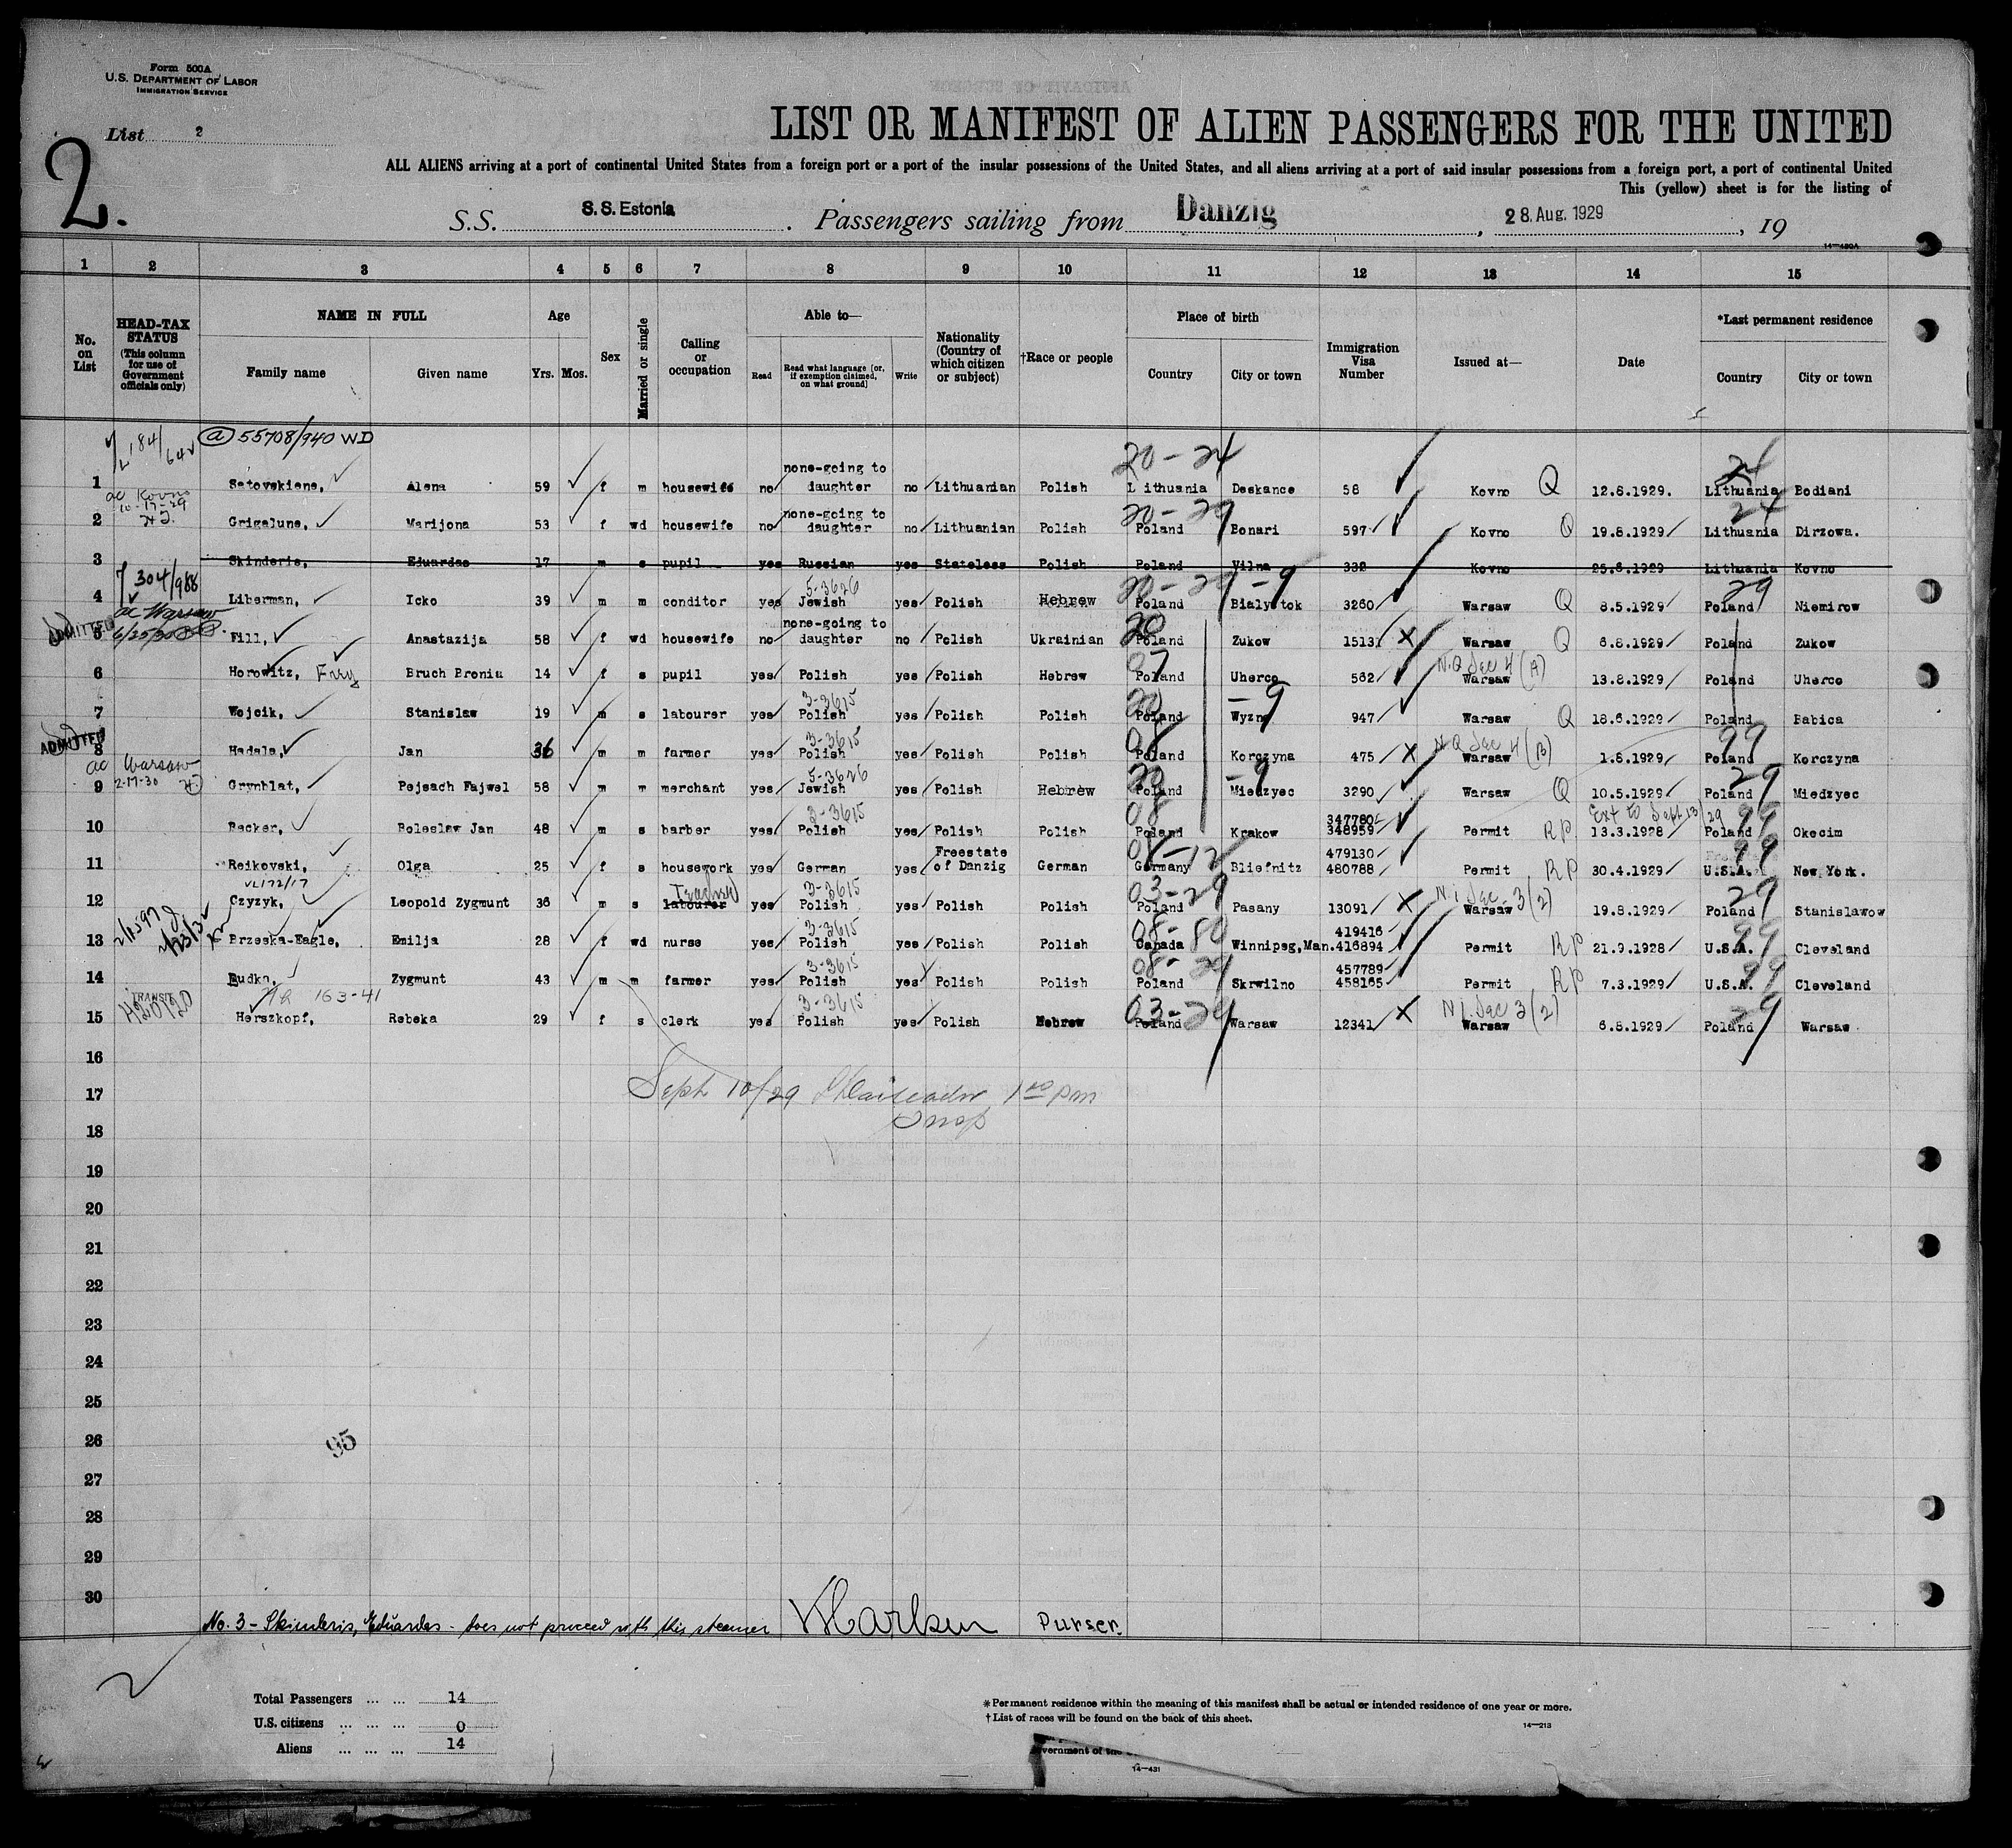 Form 500A
U.S. DEPARTMENT OF LABOR
IMMIGRATION SERVICE
List 2
2.
LIST OR MANIFEST OF ALIEN PASSENGERS FOR THE UNITED
ALL ALIENS arriving at a port of continental United States from a foreign port or a port of the insular possessions of the United States, and all aliens arriving at a port of said insular possessions from a foreign port, a port of continental United
This (yellow) sheet is for the listing of
S.S. S.S. Estonia. Passengers sailing from Danzig, 28. Aug. 1929, 19
14—430A
1 2 3 4 5 6 7 8 9 10 11 12 13 14 15
No. on List
HEAD-TAX STATUS (This column for use of Government officials only)
NAME IN FULL Family name Given name
Age Yrs. Mos.
Sex
Married or single
Calling or occupation
Able to— Read Read what language (or, if exemption claimed, on what ground) Write
Nationality (Country of which citizen or subject)
†Race or people
Place of birth Country City or town
Immigration Visa Number
Issued at—
Date
*Last permanent residence Country City or town
(a) 55708/940 WD
1 Satovskiene, Alena 59 f m housewife no none-going to daughter no Lithuanian Polish 20-24 Lithuania Deskance 58 Kovno Q 12.8.1929. Lithuania Bodiani
ac Kovno 10-17-29
2 Grigalune, Marijona 53 f wd housewife no none-going to daughter no Lithuanian Polish Poland Bonari 597 Kovno Q 19.8.1929 24 Lithuania Dirzowa.
3 Skinderis, Eduardas 17 m s pupil yes Russian yes Stateless Polish Poland Vilna 332 Kovno 25.6.1929 Lithuania Kovno
304/988
4 Liberman, Icko 39 m m conditor yes 5-3626 Jewish yes Polish Hebrew Poland Bialystok 3260 Warsaw Q 8.5.1929 29 Poland Niemirow
ac Warsaw 6/25/30
ADMITTED
5 Fill, Anastazija 58 f wd housewife no none-going to daughter no Polish Ukrainian 20 Poland Zukow 15131 Warsaw Q 6.8.1929 Poland Zukow
6 Horowitz, Bruch Bronia 14 f s pupil yes Polish yes Polish Hebrew Poland Uherce 562 N.Q Sec 4 (A) Warsaw 13.8.1929 Poland Uherce
7 Wojcik, Stanislaw 19 m s labourer yes 3-3615 Polish yes Polish Polish Poland Wyzne 947 Warsaw Q 18.6.1929 Poland Babica
ADMITTED
8 Hadala, Jan 36 m m farmer yes 3-3615 Polish yes Polish Polish Poland Korczyna 475 N.Q Sec 4 (B) Warsaw 1.8.1929 99 Poland Korczyna
ac Warsaw 2-17-30
9 Grynblat, Pejsach Fajwel 58 m m merchant yes 5-3626 Jewish yes Polish Hebrew Poland Miedzyec 3290 Warsaw Q 10.5.1929 29 Poland Miedzyec
10 Becker, Boleslaw Jan 48 m s barber yes 3-3615 Polish yes Polish Polish 08 Poland Krakow 347780 348959 Permit RP Ext to Sept 13/29 13.3.1928 99 Poland Okocim
11 Reikovski, Olga 25 f s housework yes German yes Freestate of Danzig German Germany Bliefnitz 479130 480788 Permit RP 30.4.1929 99 U.S.A. New York.
VL172/17
12 Czyzyk, Leopold Zygmunt 36 m s labourer yes 3-3615 Polish yes Polish Polish 03-29 Poland Pasany 13091 Warsaw 3(2) 19.8.1929 29 Poland Stanislawow
13 Brzeska-Eagle, Emilja 28 f wd nurse yes 3-3615 Polish yes Polish Polish 08-80 Canada Winnipeg, Man. 419416 416894 Permit RP 21.9.1928 99 U.S.A. Cleveland
14 Rudko, Zygmunt 43 m m farmer yes 3-3615 Polish yes Polish Polish Poland Skrwilno 457789 458165 Permit RP 7.3.1929 99 U.S.A. Cleveland
163-41
TRANSIT
15 Herszkopf, Rebeka 29 f s clerk yes 3-3615 Polish yes Polish Hebrew 03-29 Poland Warsaw 12341 Sec 3(2) Warsaw 6.8.1929 29 Poland Warsaw
16
17 Sept 10/29 1 00 pm
Insp
18
19
20
21
22
23
24
25
26
95
27
28
29
30
No. 3 - Skinderis, Eduardas - does not proceed with this steamer Purser.
Total Passengers ... ... 14
U.S. citizens ... ... ... 0
Aliens ... ... ... 14
*Permanent residence within the meaning of this manifest shall be actual or intended residence of one year or more.
†List of races will be found on the back of this sheet.
14—213
14—431